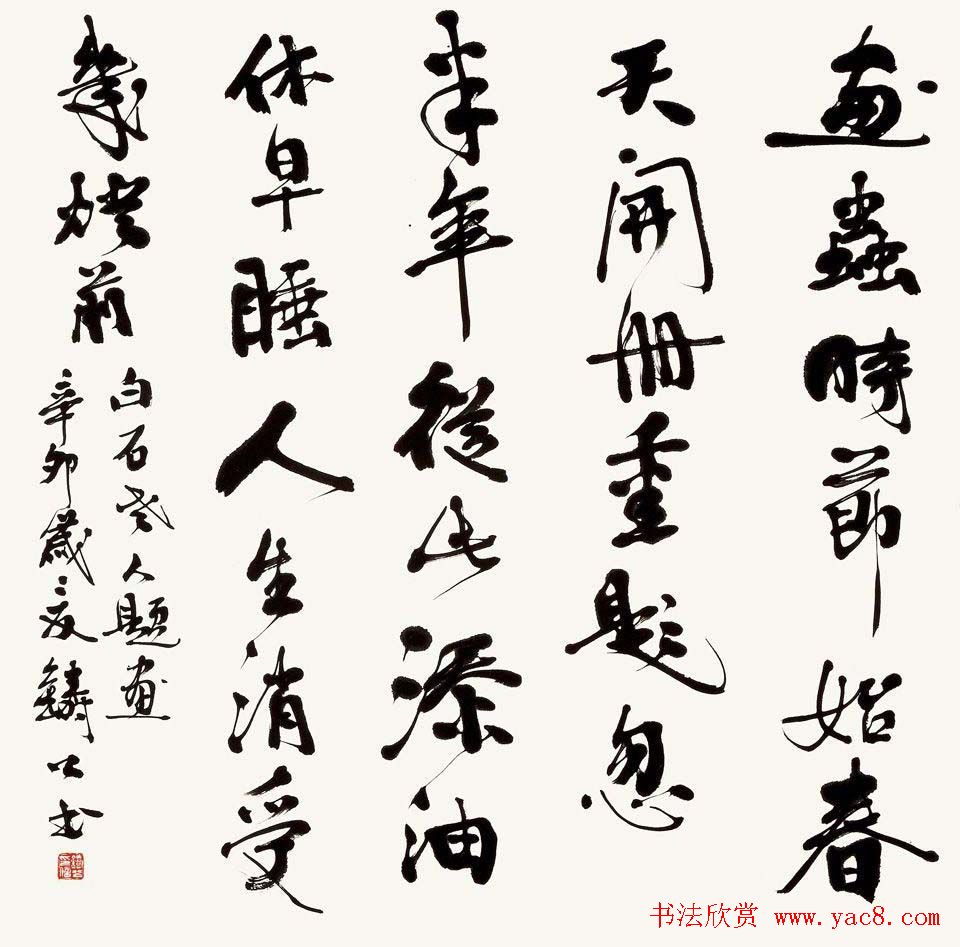 畫蟲時節始春
天開冊重題忽
半年從此添油
休早睡人生消受
幾燈前
白石老人題畫
辛卯歲夏鑄公書
书法欣赏 www.yac8.com